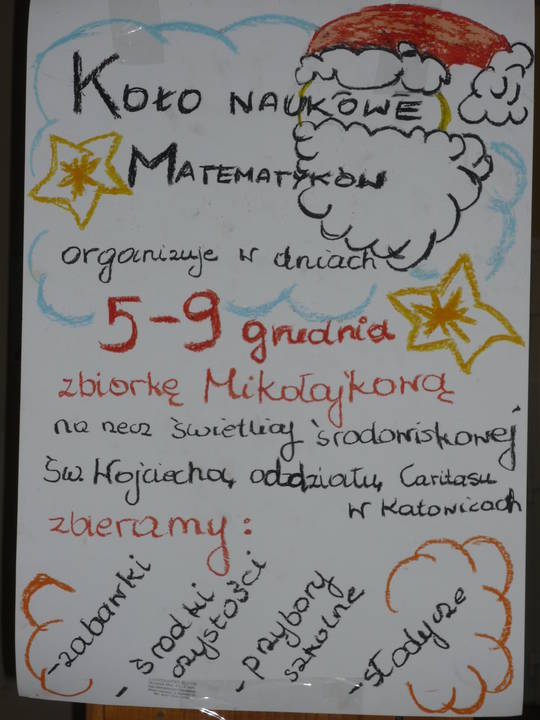 Koło NAUKOWE
MATEMATYKÓW
organizuje w dniach
5-9 grudnia
zbiorkę Mikołajkową
na rzecz świetlicy środowiskowej
Św. Wojciecha, oddziału Caritasu
w Katowicach
zbieramy:
- zabawki
- środki
czystości
- przybory
szkolne
- słodycze